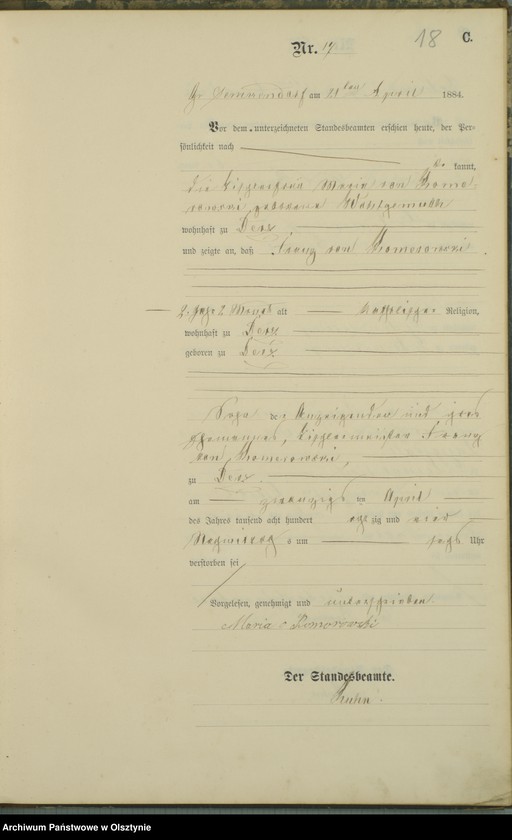 18 C.
Nr. 17
Gr. am 21ten April 1884.
Vor dem unterzeichneten Standesbeamten erschien heute, der Per-
sönlichkeit nach
kannt,
die Tischlerfrau Maria von
geborene Wohlgemuth
wohnhaft zu Derz
und zeigte an, daß Franz von Komorowski
2 Jahr 2 Monat alt katholischer Religion,
wohnhaft zu Derz
geboren zu Derz
Sohn der Anzeigenden und ihres
Ehemannes, Tischlermeister Franz
von Komorowski,
zu Derz
am zwanzigsten April
des Jahres tausend acht hundert achtzig und vier
Nachmittags um sechs Uhr
verstorben sei
Vorgelesen, genehmigt und unterschrieben.
Maria v Komorowski
Der Standesbeamte.
Kuhn
Archiwum Państwowe w Olsztynie